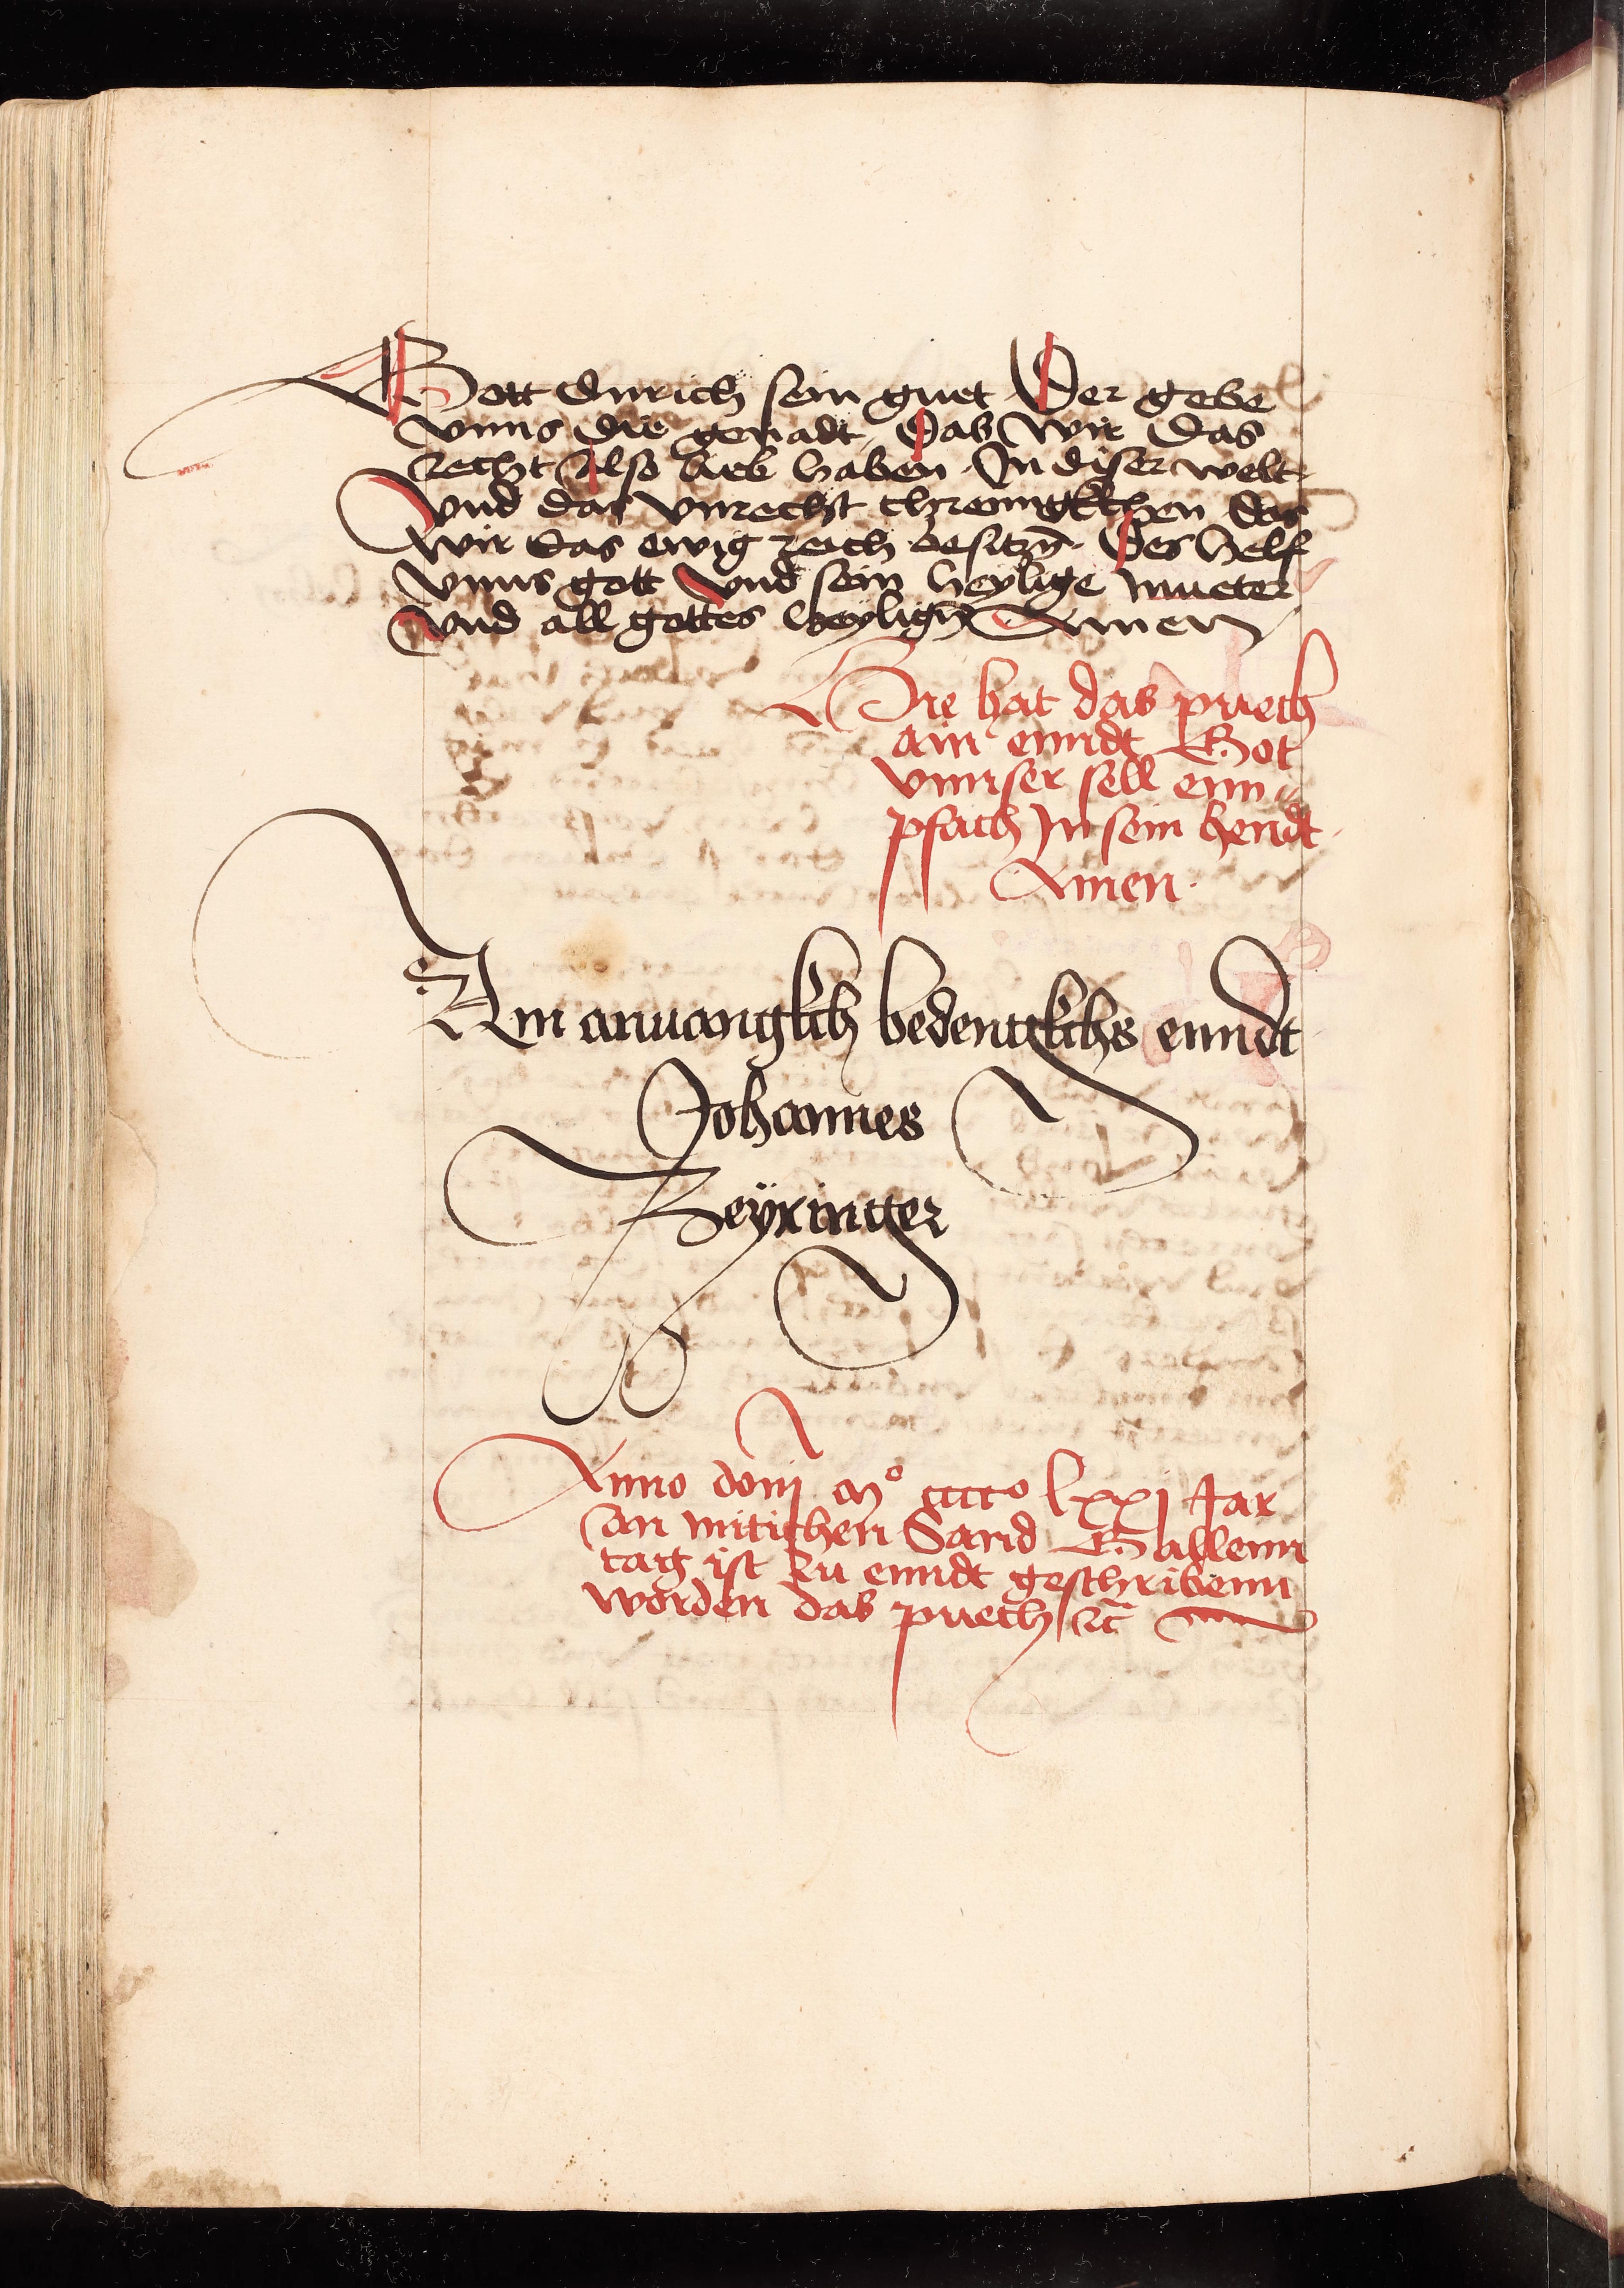 Gott durich sein guet Der gebe
vnns die genadt, Das wir das
recht also lieb haben In diser welt
vnd das vnrecht chrenngkchen das
wir das ewig reich besitzn̄ Des helf
vnns gott vnd sein heylige mueter
vnd all gottes heylign̄ Amen
Hie hat das puech
ain enndt Got
vnnser sell enn
pfach In sein hendt
Amen
Am anuangkch bedenngkchs enndt
Johannes
Geÿringer
Anno domj mo cccco lxxj Jar
An mitichen Sand Gallenn
tag ist zu enndt geschribenn
worden das puech etc̄